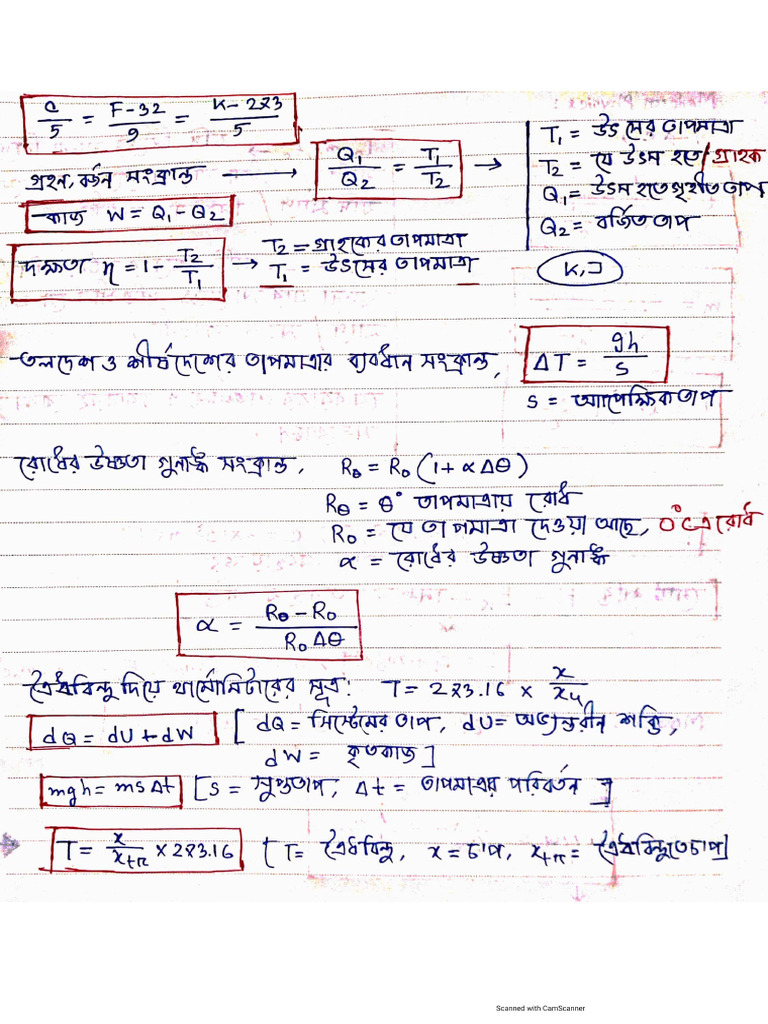 C/5 = F-32/9 = K-273/5
গ্রহন, বর্জন সংক্রান্ত → Q₁/Q₂ = T₁/T₂ →
T₁ = উৎসের তাপমাত্রা
T₂ = যে উৎস হতে/গ্রাহক
Q₁ = উৎস হতে গৃহীত তাপ
Q₂ = বর্জিত তাপ
K, J
কাজ W = Q₁-Q₂
দক্ষতা η = 1- T₂/T₁ → T₂ = গ্রাহকের তাপমাত্রা
T₁ = উৎসের তাপমাত্রা
তলদেশ ও শীর্ষদেশের তাপমাত্রার ব্যবধান সংক্রান্ত, ΔT = gh/s
s = আপেক্ষিক তাপ
রোধের উষ্ণতা গুনাঙ্ক সংক্রান্ত, Rθ = R₀(1+αΔθ)
Rθ = θ° তাপমাত্রায় রোধ
R₀ = যে তাপমাত্রা দেওয়া আছে, 0°C এ রোধ
α = রোধের উষ্ণতা গুনাঙ্ক
α = Rθ-R₀/R₀Δθ
ত্রৈধবিন্দু দিয়ে থার্মোমিটারের সূত্র: T = 273.16 × x/x₄
dQ = dU+dW [dQ = সিস্টেমের তাপ, dU = অভ্যন্তরীন শক্তি,
dW = কৃতকাজ]
mgh = msΔt [s = সুপ্ততাপ, Δt = তাপমাত্রার পরিবর্তন]
T = x/xtr × 273.16 [T = ত্রৈধবিন্দু, x = চাপ, xtr = ত্রৈধবিন্দুতে চাপ]
Scanned with CamScanner